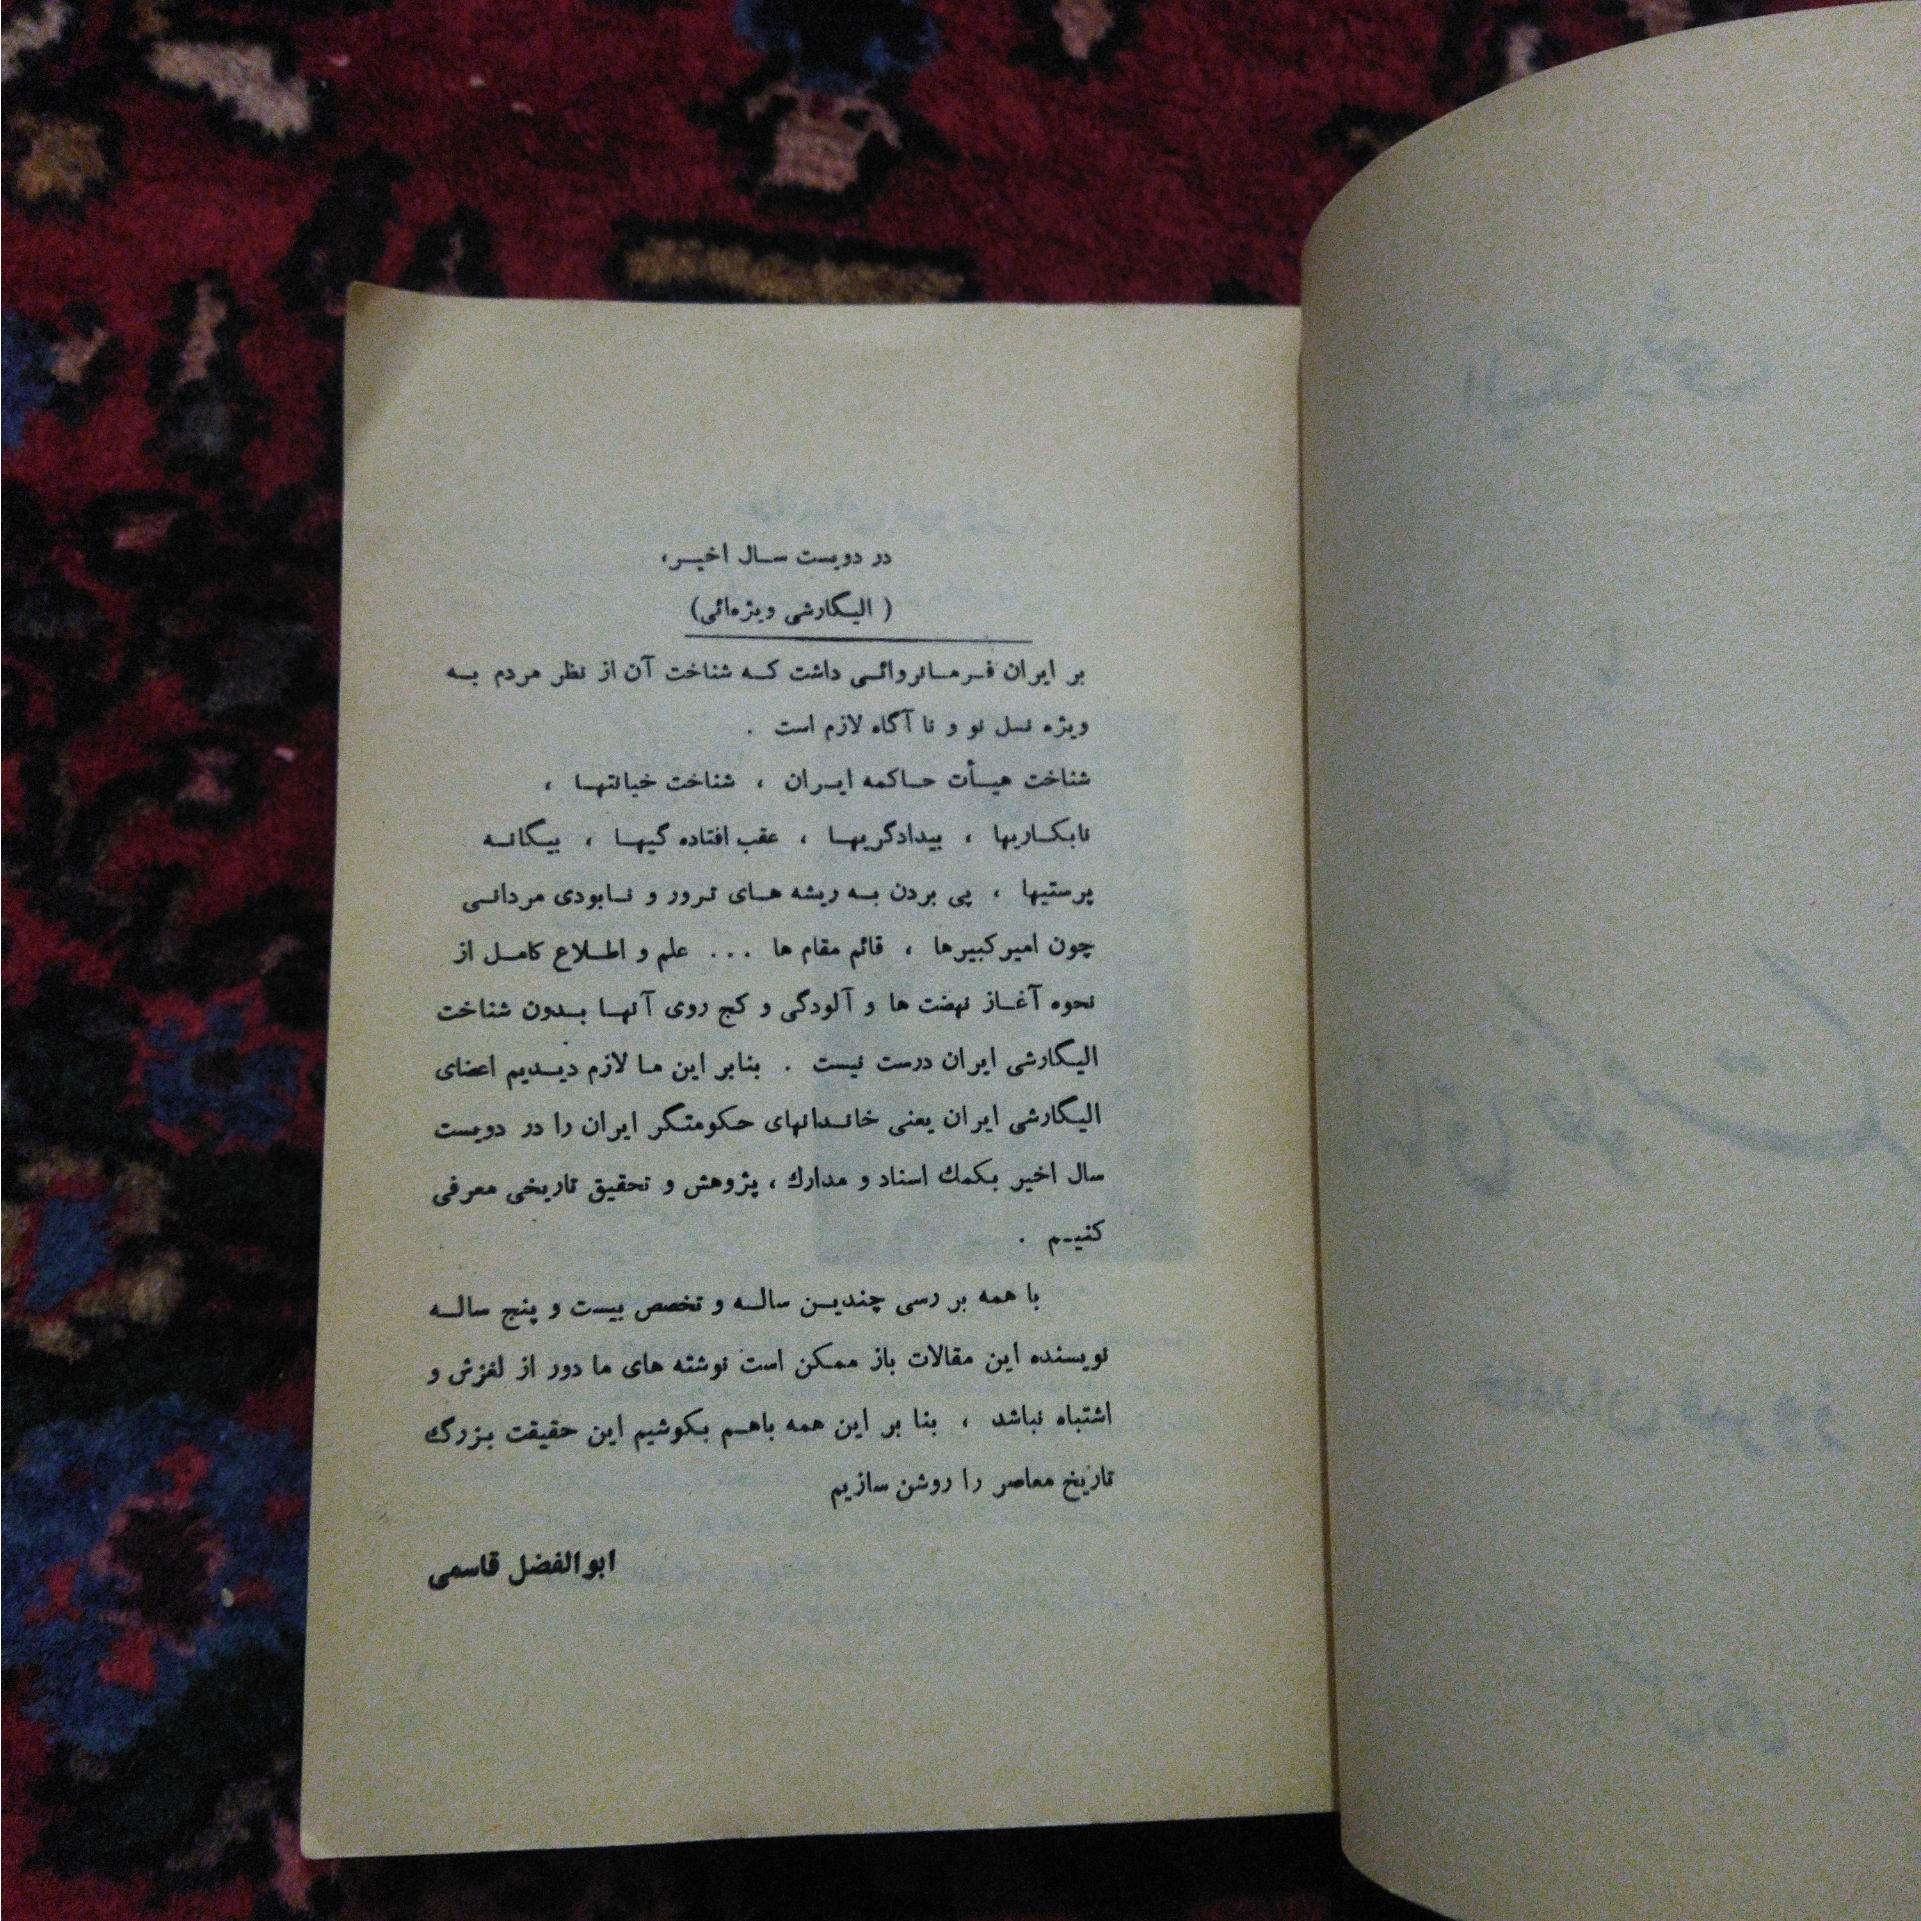 در دویست سال اخیر،
( الیگارشی ویژه‌ائی)
بر ایران فرمانروائی داشت که شناخت آن از نظر مردم به
ویژه نسل نو و نا آگاه لازم است .
شناخت هیأت حاکمه ایران ، شناخت خیانتها ،
نابکاریها ، بیدادگریها ، عقب افتاده گیها ، بیگانه
پرستیها ، پی بردن به ریشه های ترور و نابودی مردانی
چون امیرکبیرها ، قائم مقام ها ... علم و اطلاع کامل از
نحوه آغاز نهضت ها و آلودگی و کج روی آنها بدون شناخت
الیگارشی ایران درست نیست . بنابر این ما لازم دیدیم اعضای
الیگارشی ایران یعنی خاندانهای حکومتگر ایران را در دویست
سال اخیر بکمك اسناد و مدارك ، پژوهش و تحقیق تاریخی معرفی
کنیم .
با همه بررسی چندین ساله و تخصص بیست و پنج ساله
نویسنده این مقالات باز ممکن است نوشته های ما دور از لغزش و
اشتباه نباشد ، بنا بر این همه باهم بکوشیم این حقیقت بزرگ
تاریخ معاصر را روشن سازیم
ابوالفضل قاسمی